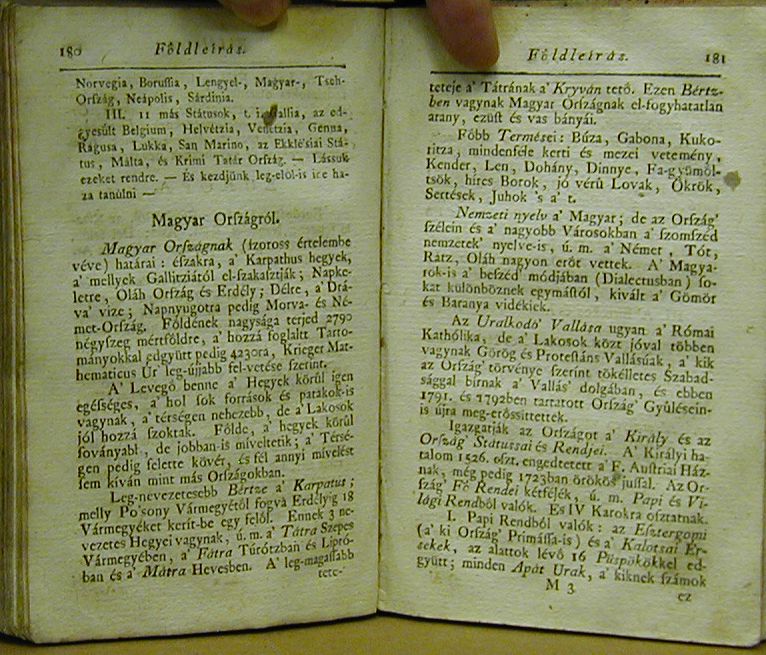 180 Földleírás.
Norvegia, Boruſſia, Lengyel-, Magyar-, Tſch-
Orſzág, Neápolis, Sárdinia.
III. 11 más Státusok, t. i. Gallia, az ed-
gyesült Belgium, Helvétzia, Venétzia, Genua,
Rágusa, Lukka, San Marino, az Ekkléſiai Stá-
tus, Málta, és Krimi Tatár Orſzág. — Láſsuk
ezeket rendre. — És kezdjünk leg-elöl-is itt ha-
za tanúlni —
Magyar Orſzágról.
Magyar Orſzágnak (ſzoross értelembe
véve) határai: éſzakra, a' Karpathus hegyek,
a' mellyek Gallitziától el-ſzakaſztják; Napke-
letre, Oláh Orſzág és Erdély; Délre, a' Drá-
va' vize; Napnyúgotra pedig Morva- és Né-
met-Orſzág. Földének nagysága terjed 2790
négyſzeg mértföldre, a' hozzá foglaltt Tarto-
mányokkal edgyütt pedig 4230ra, Krieger Mat-
hematicus Úr leg-újjabb fel-vetése ſzerint.
A' Levegő benne a' Hegyek körűl igen
egéſséges, a' hol ſok források és patakok-is
vagynak, a' térségen nehezebb, de a' Lakosok
jól hozzá ſzoktak. Földe, a' hegyek körűl
ſoványabb, de jobban-is míveltetik; a' Térsé-
gen pedig felette kövér, és fél annyi mívelést
ſem kíván mint más Orſzágokban.
Leg-nevezetesebb Bértze a' Karpatus;
melly Po'sony Vármegyétől fogva Erdélyig 18
Vármegyéket kerít-be egy felől. Ennek 3 ne-
vezetes Hegyei vagynak, ú. m. a' Tátra Szepes
Vármegyében, a' Fátra Túrótzban és Lipró-
ban és a' Mátra Hevesben. A' leg-magaſſabb
tete-
Földleírás. 181
teteje a' Tátrának a' Kryván tető. Ezen Bértz-
ben vagynak Magyar Orſzágnak el-fogyhatatlan
arany, ezüſt és vas bányái.
Főbb Termései: Búza, Gabona, Kuko-
ritza, mindenféle kerti és mezei vetemény,
Kender, Len, Dohány, Dinnye, Fa-gyümöl-
tsök, híres Borok, jó vérű Lovak, Ökrök,
Sertések, Juhok 's a' t.
Nemzeti nyelv a' Magyar; de az Orſzág'
ſzélein és a' nagyobb Városokban a' ſzomſzéd
nemzetek' nyelve-is, ú. m. a' Német, Tót,
Rátz, Oláh nagyon erőt vettek. A' Magya-
rok-is a' beſzéd módjában (Dialectusban) ſo-
kat különböznek egymáſtól, kivált a' Gömör
és Baranya vidékiek.
Az Uralkodó Vallása ugyan a' Római
Kathólika, de a' Lakosok közt jóval többen
vagynak Görög és Proteſtáns Vallásúak, a' kik
az Orſzág' törvénye ſzerint tökélletes Szabad-
sággal bírnak a' Vallás' dolgában, és ebben
1791. és 1792ben tartatott Orſzág' Gyűlésein-
is újra meg-erőssittettek.
Igazgatják az Orſzágot a' Király és az
Orſzág' Státussai és Rendjei. A' Királyi ha-
talom 1526. oſzt. engedtetett a' F. Auſtriai Ház-
nak, még pedig 1723ban örökös juſſal. Az Or-
ſzág' Fő Rendei kétfélék, ú. m. Papi és Vi-
lági Rendből valók. Es IV Karokra oſztatnak.
I. Papi Rendből valók: az Eſztergomi
(a' ki Orſzág' Primáſſa-is) és a' Kalotsai Ér-
sekek, az alattok lévő 16 Püspökökkel ed-
gyütt; minden Apát Urak, a' kiknek ſzámok
M 3
ez